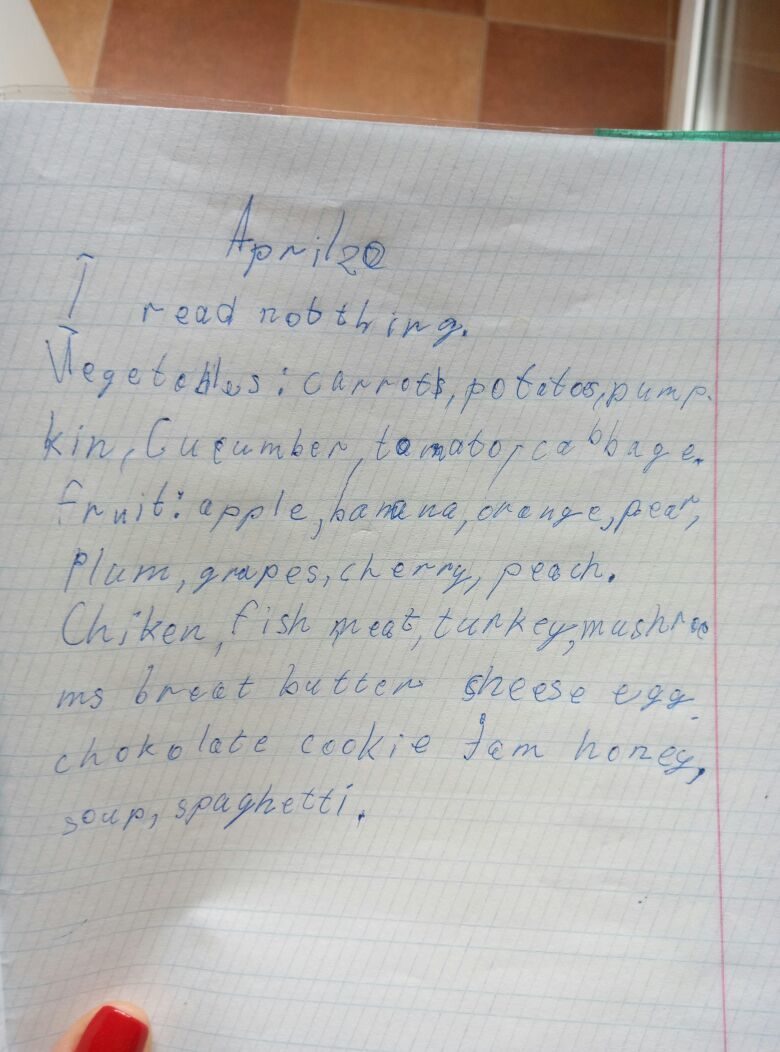 April 20
I read nobthing.
Vegetables: carrots, potatos, pump-
kin, Cucumber, tomato, cabbage.
fruit: apple, banana, orange, pear,
Plum, grapes, cherry, peach.
Chiken, fish meat, turkey, mushroo
ms breat butter sheese egg.
chokolate cookie Jam honey,
soup, spaghetti.